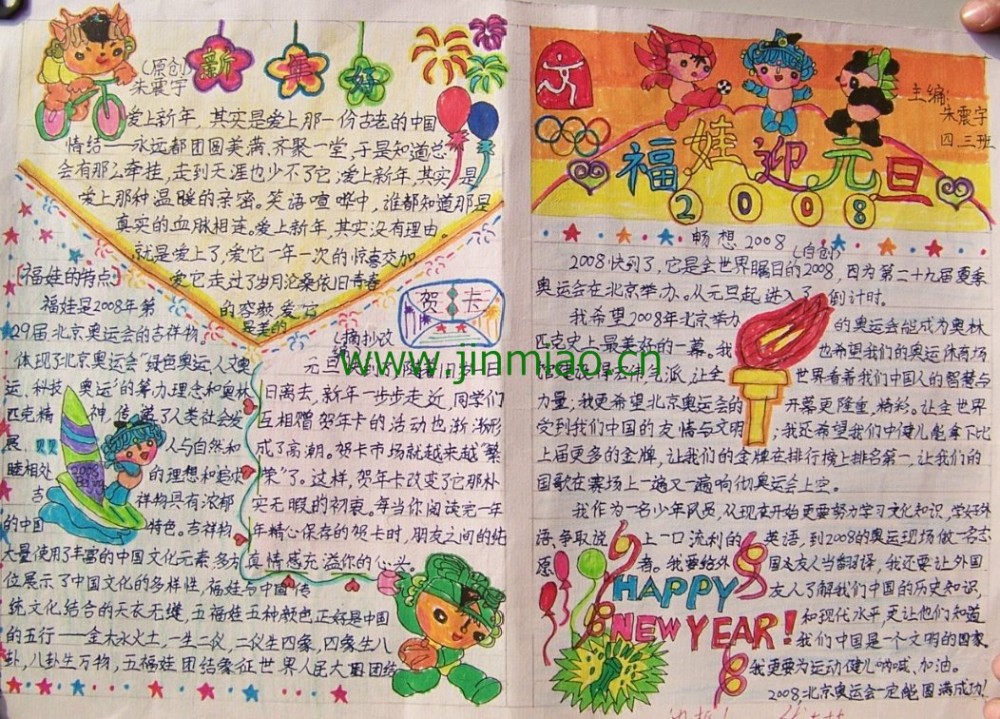 新年好
(原创)
朱震宇
爱上新年，其实是爱上那一份古老的中国
情结——永远都团圆美满，齐聚一堂，于是知道总
会有那么牵挂，走到天涯也少不了它；爱上新年，其实是
爱上那种温暖的亲密。笑语喧哗中，谁都知道那是
真实的血脉相连。爱上新年，其实没有理由。
就是爱上了，爱它一年一次的惊喜交加
爱它走过了岁月沧桑依旧青春
的容颜
最美的
[福娃的特点]
福娃是2008年第
29届北京奥运会的吉祥物。
体现了北京奥运会“绿色奥运、人文奥
运、科技奥运”的筹办理念和奥林
匹克精神，传递了人类社会发
展、人与自然和
睦相处的理想和追求
吉祥物具有浓郁
的中国特色。吉祥物
大量使用了丰富的中国文化元素，多方
位展示了中国文化的多样性，福娃与中国传
统文化结合的天衣无缝，五福娃五种颜色正好是中国
的五行——金木水火土，一生二仪，二仪生四象，四象生八
卦，八卦生万物，五福娃团结象征世界人民大团结
贺卡
(摘抄)
元旦
日离去，新年一步步走近，同学们
互相赠贺年卡的活动也渐渐形
成了高潮。贺卡市场就越来越“繁
荣”了。这样，贺年卡改变了它那朴
实无暇的初衷。每当你阅读完一年
年精心保存的贺卡时，朋友之间的纯
真情感充溢你的心头。
主编:
朱震宇
四三班
福娃迎元旦
2008
畅想2008
(自创)
2008快到了，它是全世界瞩目的2008，因为第二十九届夏季
奥运会在北京举办。从元旦起，进入了倒计时。
我希望2008年北京举办的奥运会能成为奥林
匹克史上最美好的一幕。我也希望我们的奥运体育场
派，让全世界看着我们中国人的智慧与
力量，我更希望北京奥运会的开幕更隆重，精彩。让全世界
受到我们中国的友情与文明，我还希望我们中健儿能拿下比
上届更多的金牌，让我们的金牌在排行榜上排名第一，让我们的
国歌在赛场上一遍又一遍响彻奥运会上空。
我作为一名少年队员，从现在开始更要努力学习文化知识，学好外
语，争取说上一口流利的英语，到2008的奥运现场做一名志
愿者。我要给外国友人当翻译，我还要让外国
友人了解我们中国的历史知识，
和现代水平，更让他们知道
我们中国是一个文明的国家
我更要为运动健儿呐喊、加油。
2008北京奥运会一定能圆满成功！
HAPPY
NEW YEAR!
www.jinmiao.cn